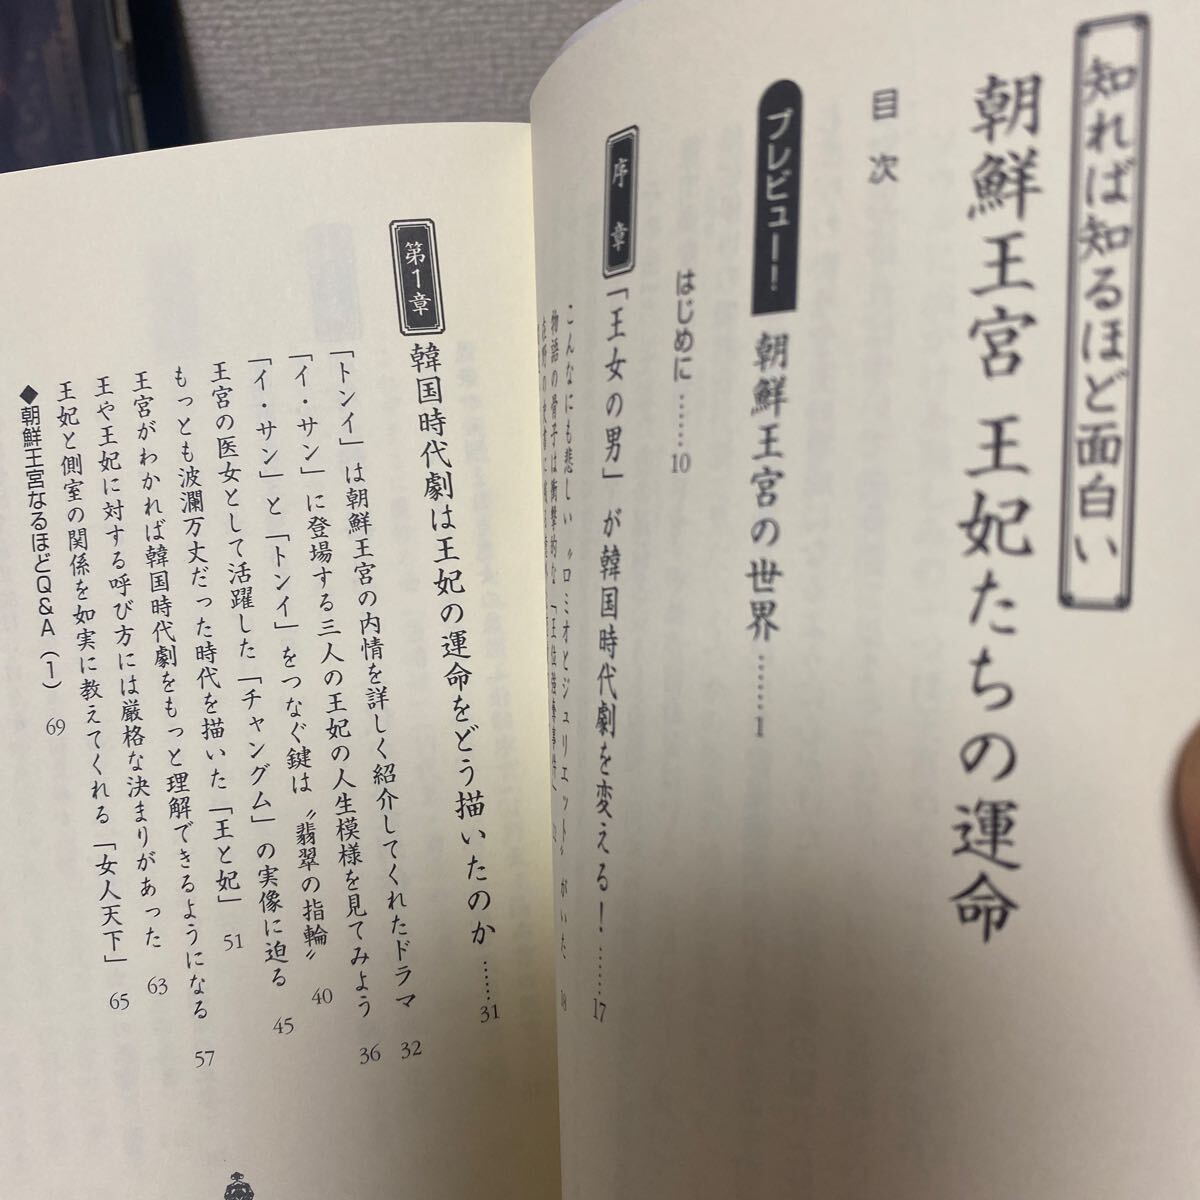 知れば知るほど面白い
朝鮮王宮 王妃たちの運命
目次
プレビュー! 朝鮮王宮の世界……1
はじめに……10
序章 「王女の男」が韓国時代劇を変える!……17
こんなにも悲しい〝ロミオとジュリエット〟がいた 18
物語の骨子は衝撃的な「王位
第1章 韓国時代劇は王妃の運命をどう描いたのか……31
「トンイ」は朝鮮王宮の内情を詳しく紹介してくれたドラマ 32
「イ・サン」に登場する三人の王妃の人生模様を見てみよう 36
「イ・サン」と「トンイ」をつなぐ鍵は〝翡翠の指輪〟 40
王宮の医女として活躍した「チャングム」の実像に迫る 45
もっとも波瀾万丈だった時代を描いた「王と妃」 51
王宮がわかれば韓国時代劇をもっと理解できるようになる 57
王や王妃に対する呼び方には厳格な決まりがあった 63
王妃と側室の関係を如実に教えてくれる「女人天下」 65
◆朝鮮王宮なるほどQ&A(1) 69